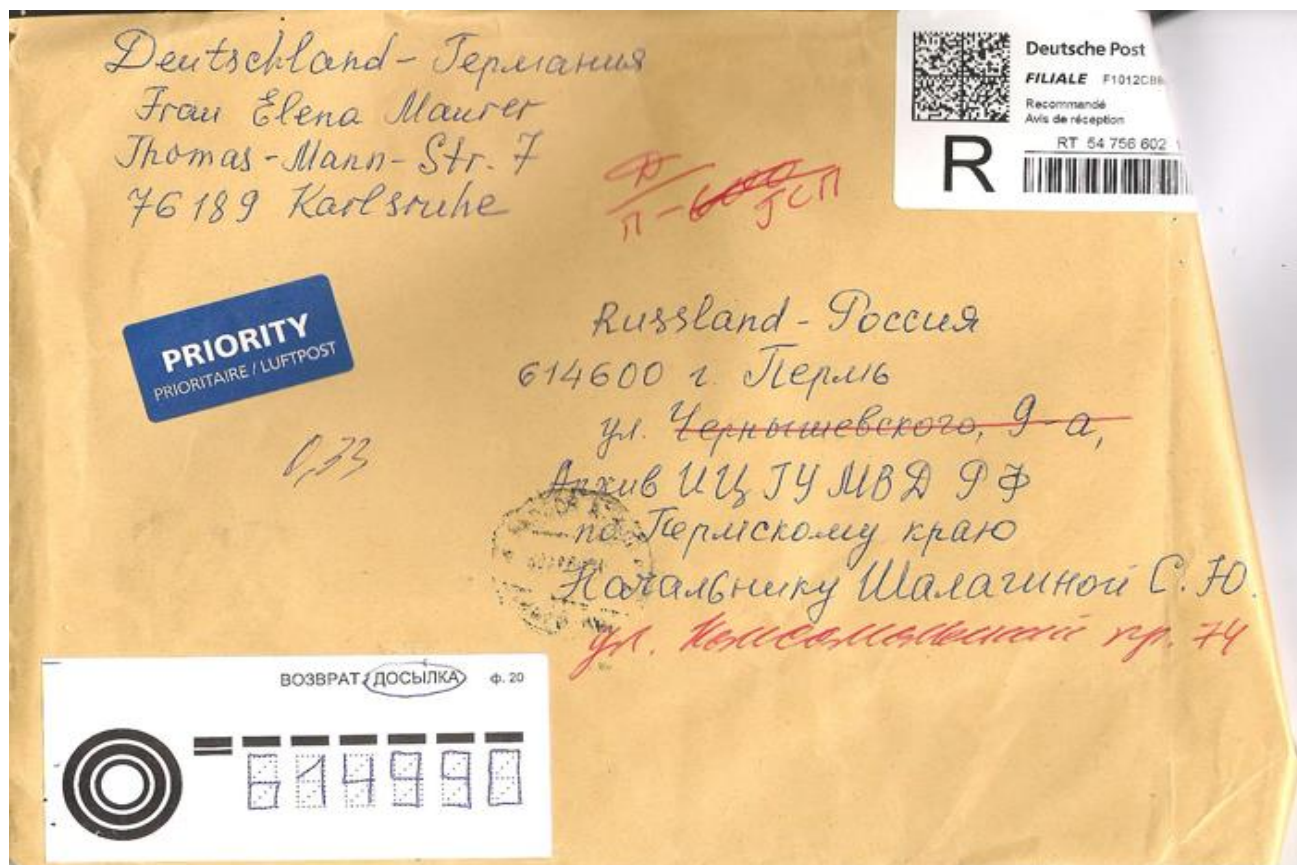 Deutschland - Германия
Frau Elena Maurer
Thomas-Mann-Str. 7
76189 Karlsruhe
Deutsche Post
FILIALE F1012CB
Recommandé
Avis de réception
R
RT 54 756 602
П - 600
ГСП
PRIORITY
PRIORITAIRE / LUFTPOST
0,33
Russland - Россия
614600 г. Пермь
ул. Чернышевского, 9-а,
Архив ИЦ ГУ МВД РФ
по Пермскому краю
Начальнику Шалагиной С. Ю.
ул. Комсомольский пр. 74
ВОЗВРАТ / ДОСЫЛКА ф. 20
614990